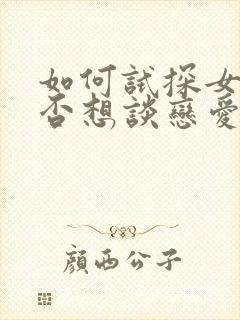 如何試探女
否想談戀愛
顏西公子